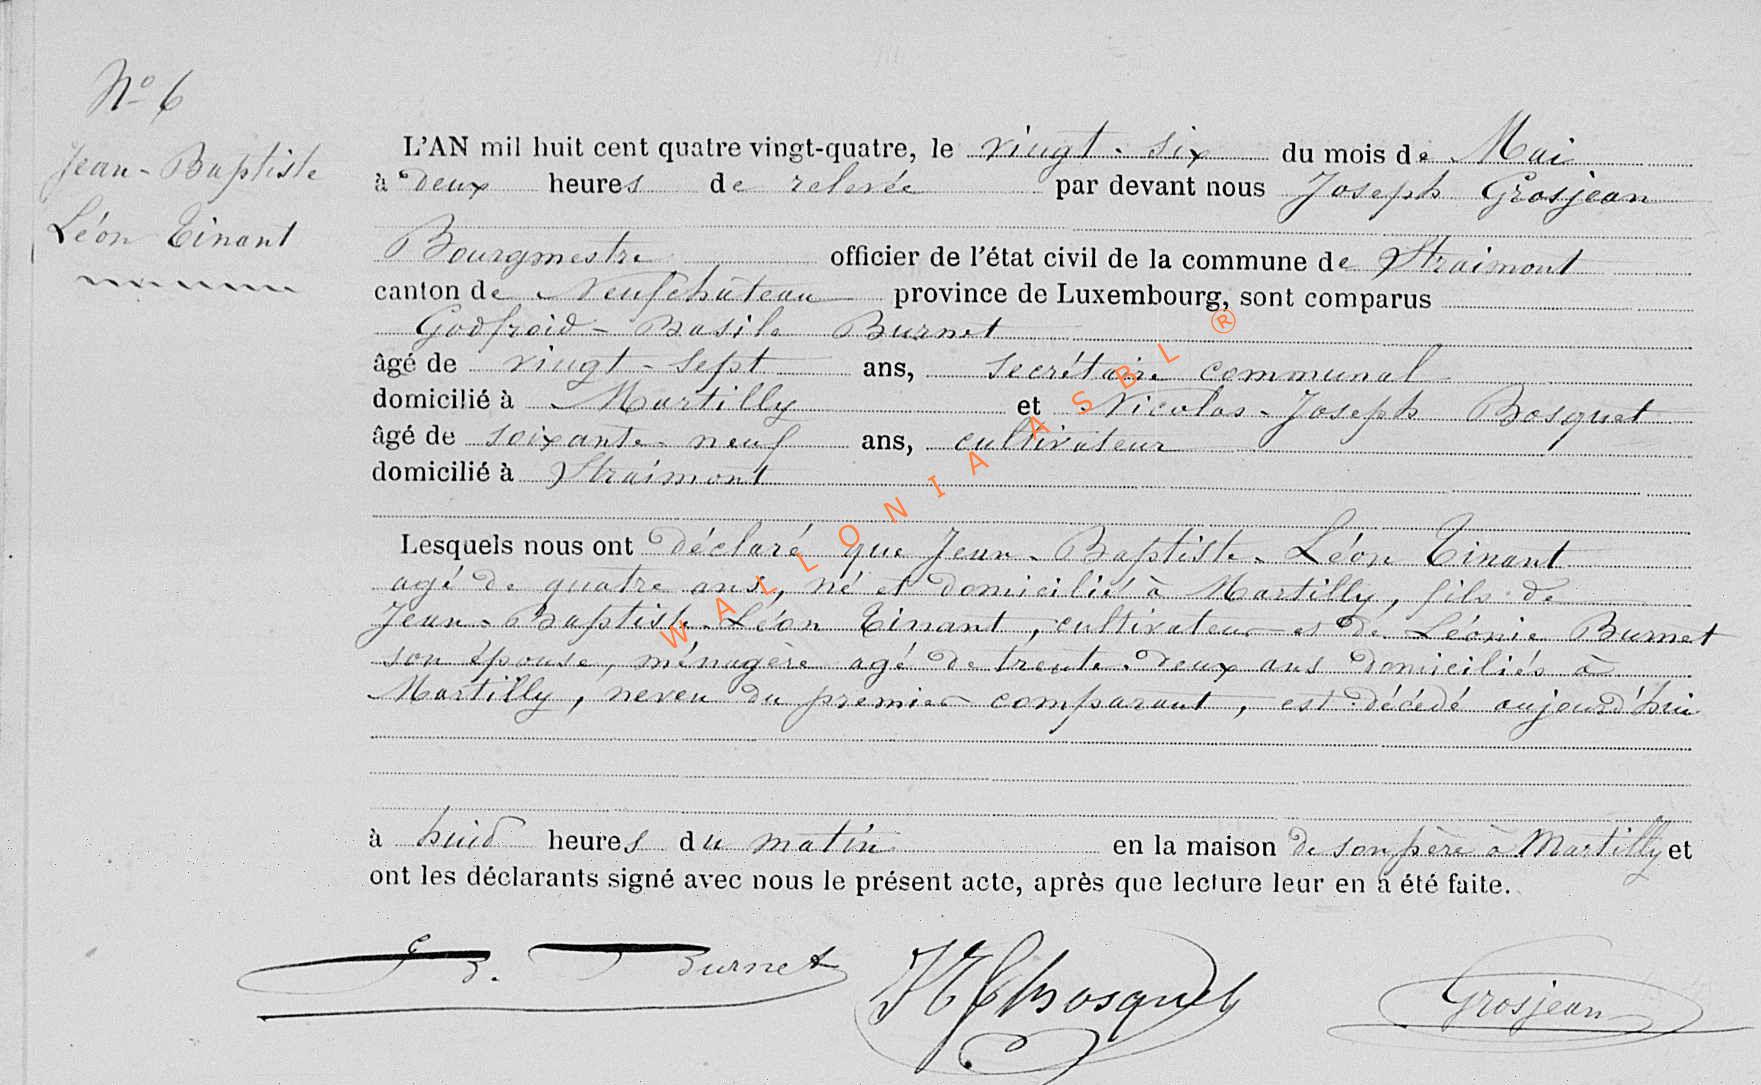 Nº 6
Jean-Baptiste
Léon Tinant
L'AN mil huit cent quatre vingt-quatre, le vingt-six du mois de Mai
à deux heures de relevée par devant nous Joseph Grosjean
Bourgmestre officier de l'état civil de la commune de Straimont
canton de Neufchâteau province de Luxembourg, sont comparus
Godfroid-Basile Burnet
âgé de vingt-sept ans, secrétaire communal
domicilié à Martilly et Nicolas-Joseph Bosquet
âgé de soixante-neuf ans, cultivateur
domicilié à Straimont
Lesquels nous ont déclaré que Jean-Baptiste-Léon Tinant
agé de quatre ans, né et domicilié à Martilly, fils de
Jean-Baptiste-Léon Tinant, cultivateur et de Léonie Burnet
son épouse, ménagère agé de trente-deux ans domiciliés à
Martilly, neveu du premier comparant, est décédé aujourd'hui
à huid heures du matin en la maison de son père à Martilly et
ont les déclarants signé avec nous le présent acte, après que lecture leur en a été faite.
G B. Burnet
Bosquet
Grosjean
WALLONIA ASBL ®